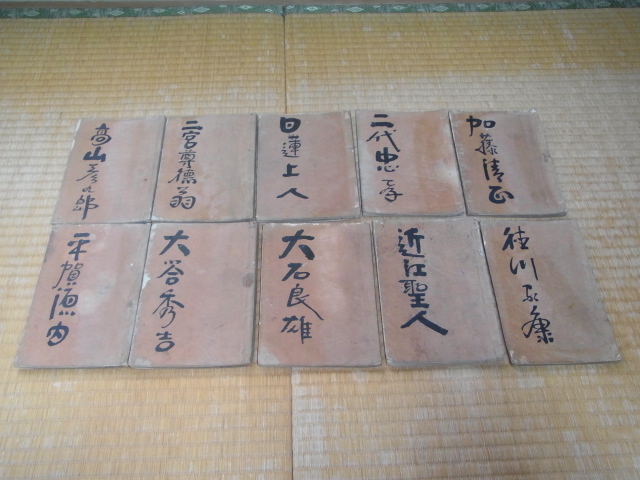 加藤清正
二代忠孝
日蓮上人
二宮尊徳翁
高山彦九郎
徳川家康
近江聖人
大石良雄
秀吉
平賀源内